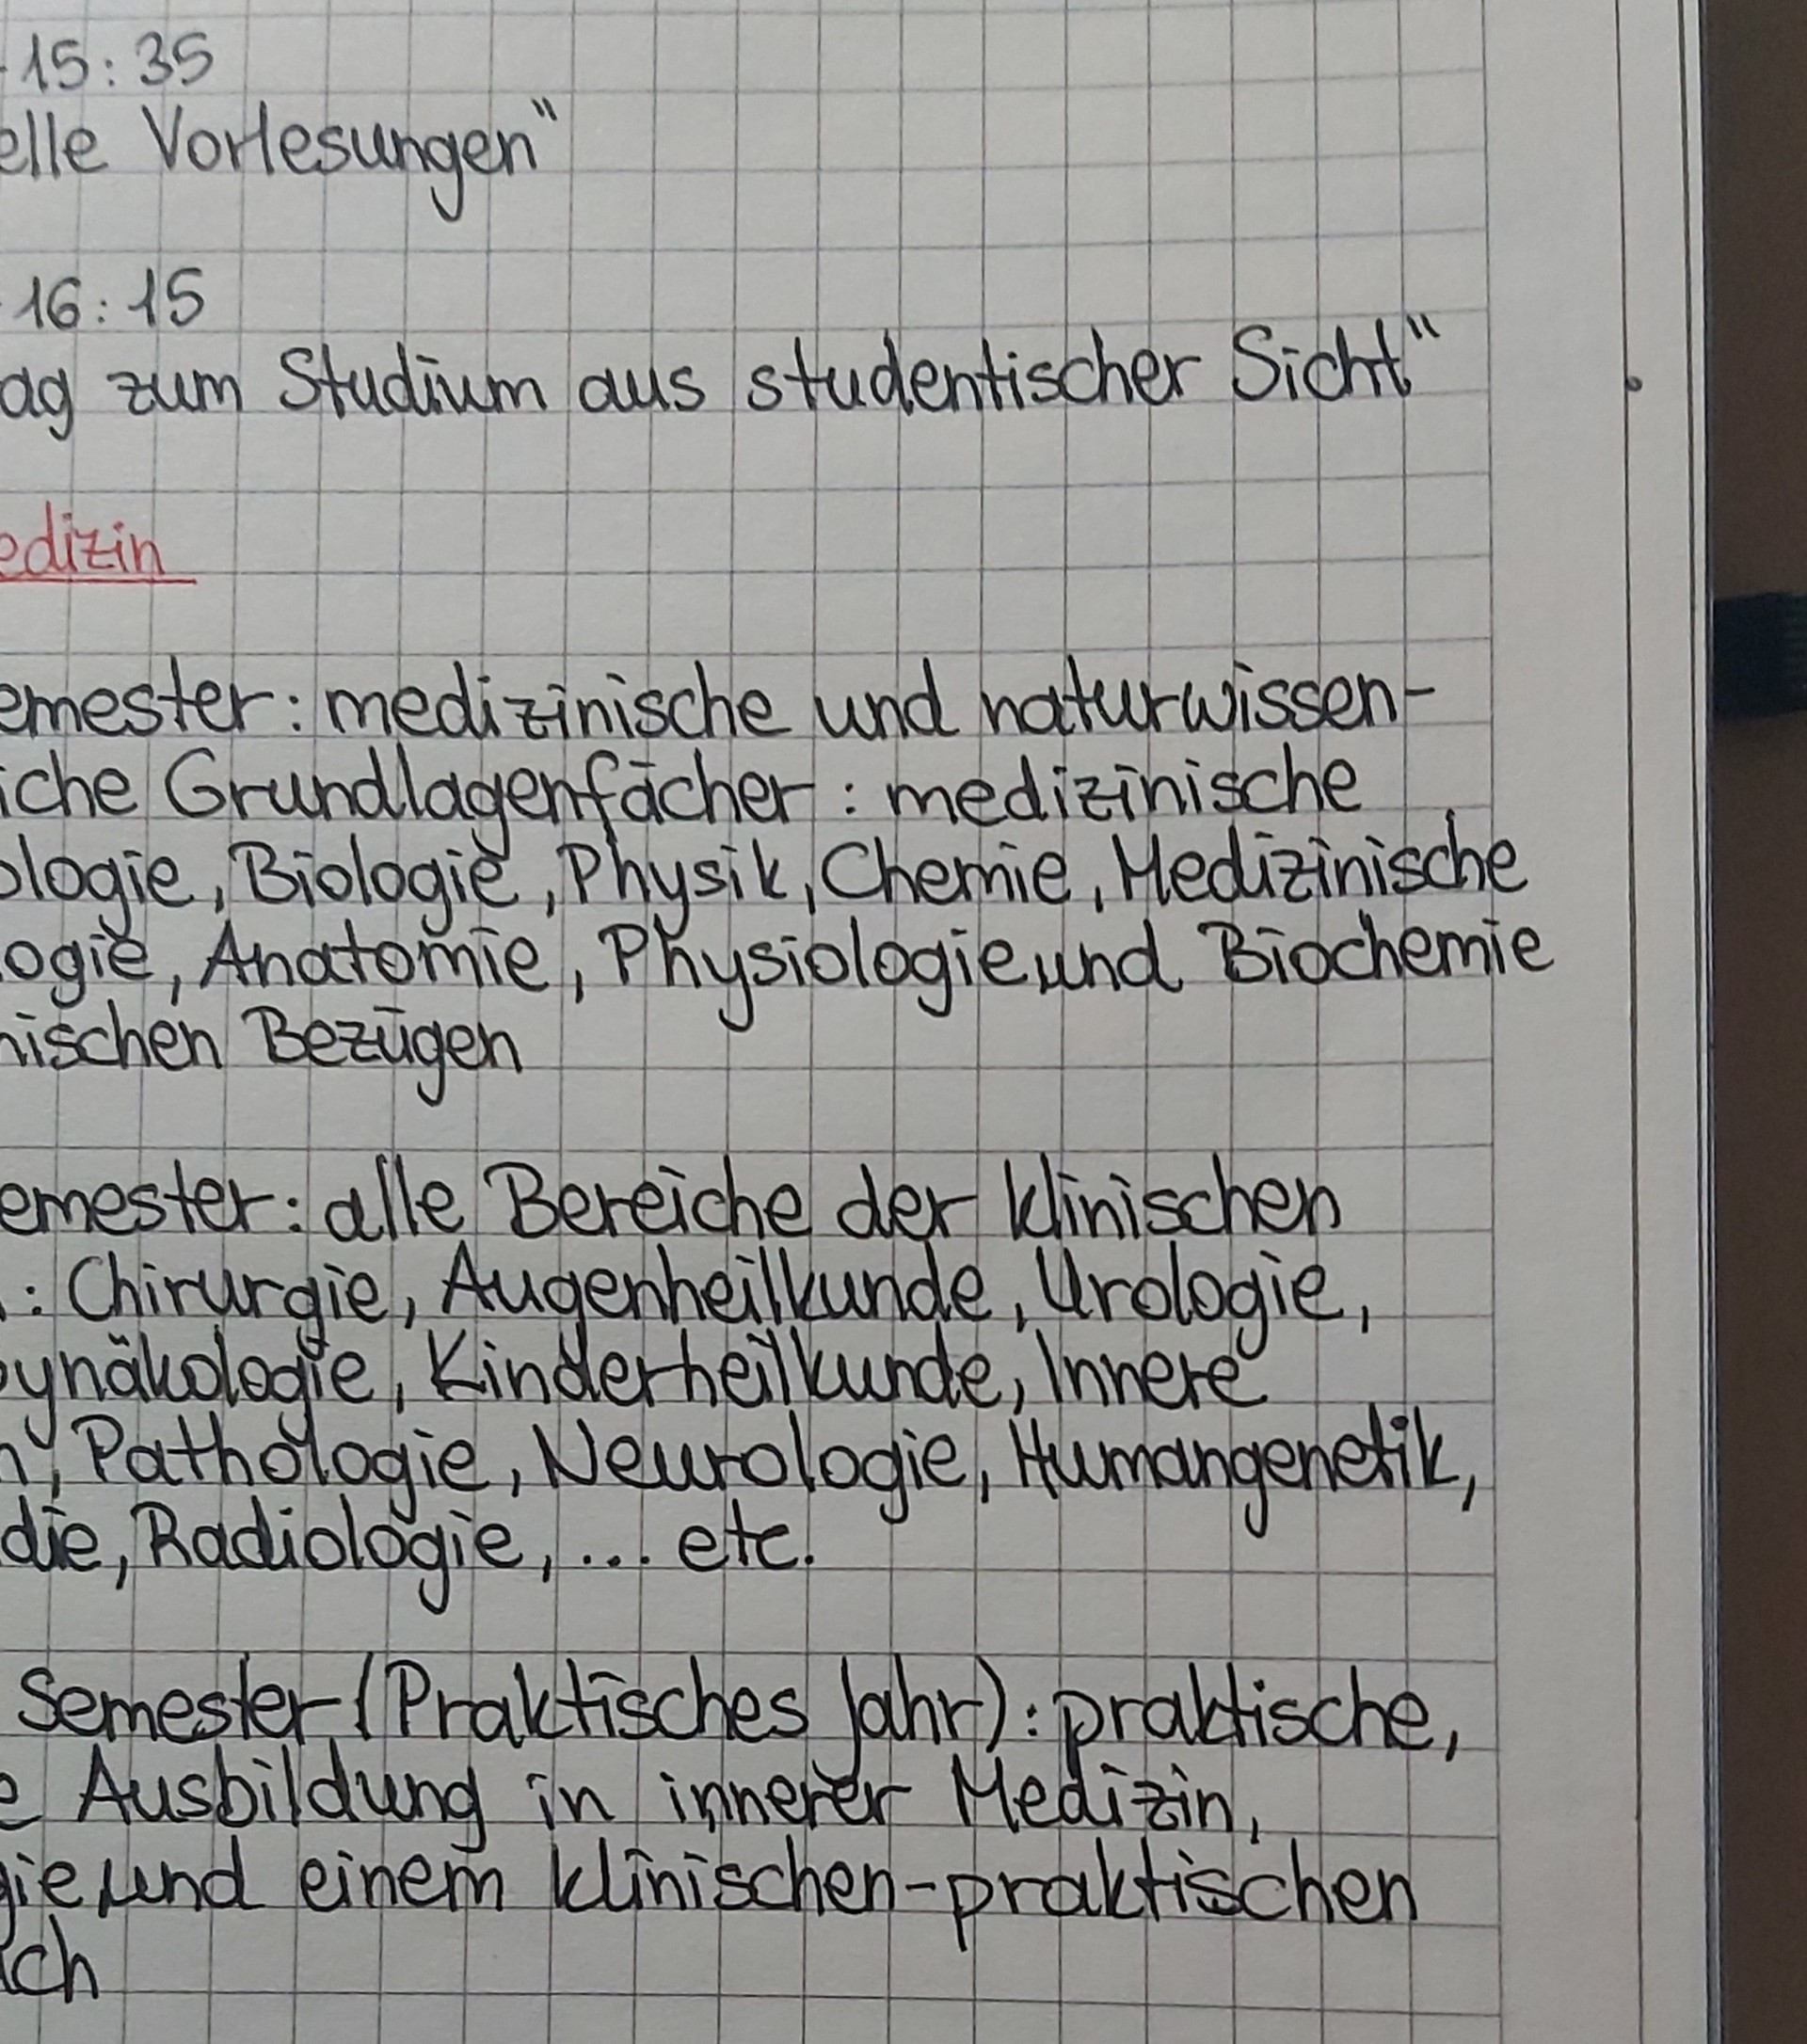 - 15:35
elle Vorlesungen"
- 16:15
ag zum Studium aus studentischer Sicht"
edizin
emester: medizinische und naturwissen-
iche Grundlagenfächer: medizinische
ologie, Biologie, Physik, Chemie, Medizinische
ogie, Anatomie, Physiologie und Biochemie
nischen Bezügen
emester: alle Bereiche der klinischen
: Chirurgie, Augenheilkunde, Urologie,
ynäkologie, Kinderheilkunde, Innere
n, Pathologie, Neurologie, Humangenetik,
die, Radiologie, ... etc.
Semester (Praktisches Jahr): praktische,
e Ausbildung in innerer Medizin,
gie und einem klinischen-praktischen
ich